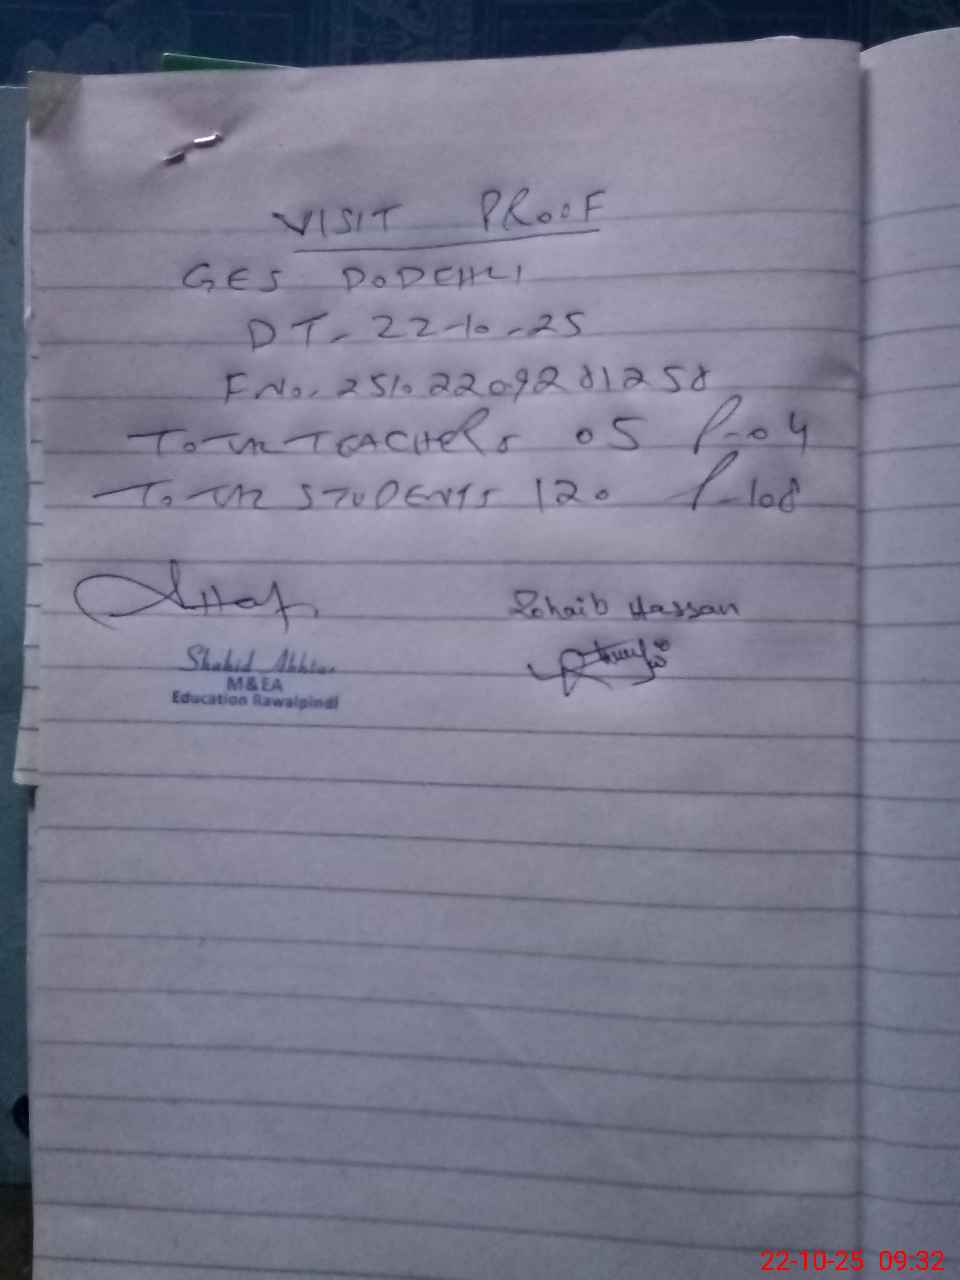 VISIT PROOF
GES DODEHLI
DT- 22-10-25
F No. 2510220928 1258
TOTAL TEACHERS 05 P-04
TOTAL STUDENTS 120 P-108
Zohaib Hassan
Shahid Akhtar
M&EA
Education Rawalpindi
22-10-25 09:32